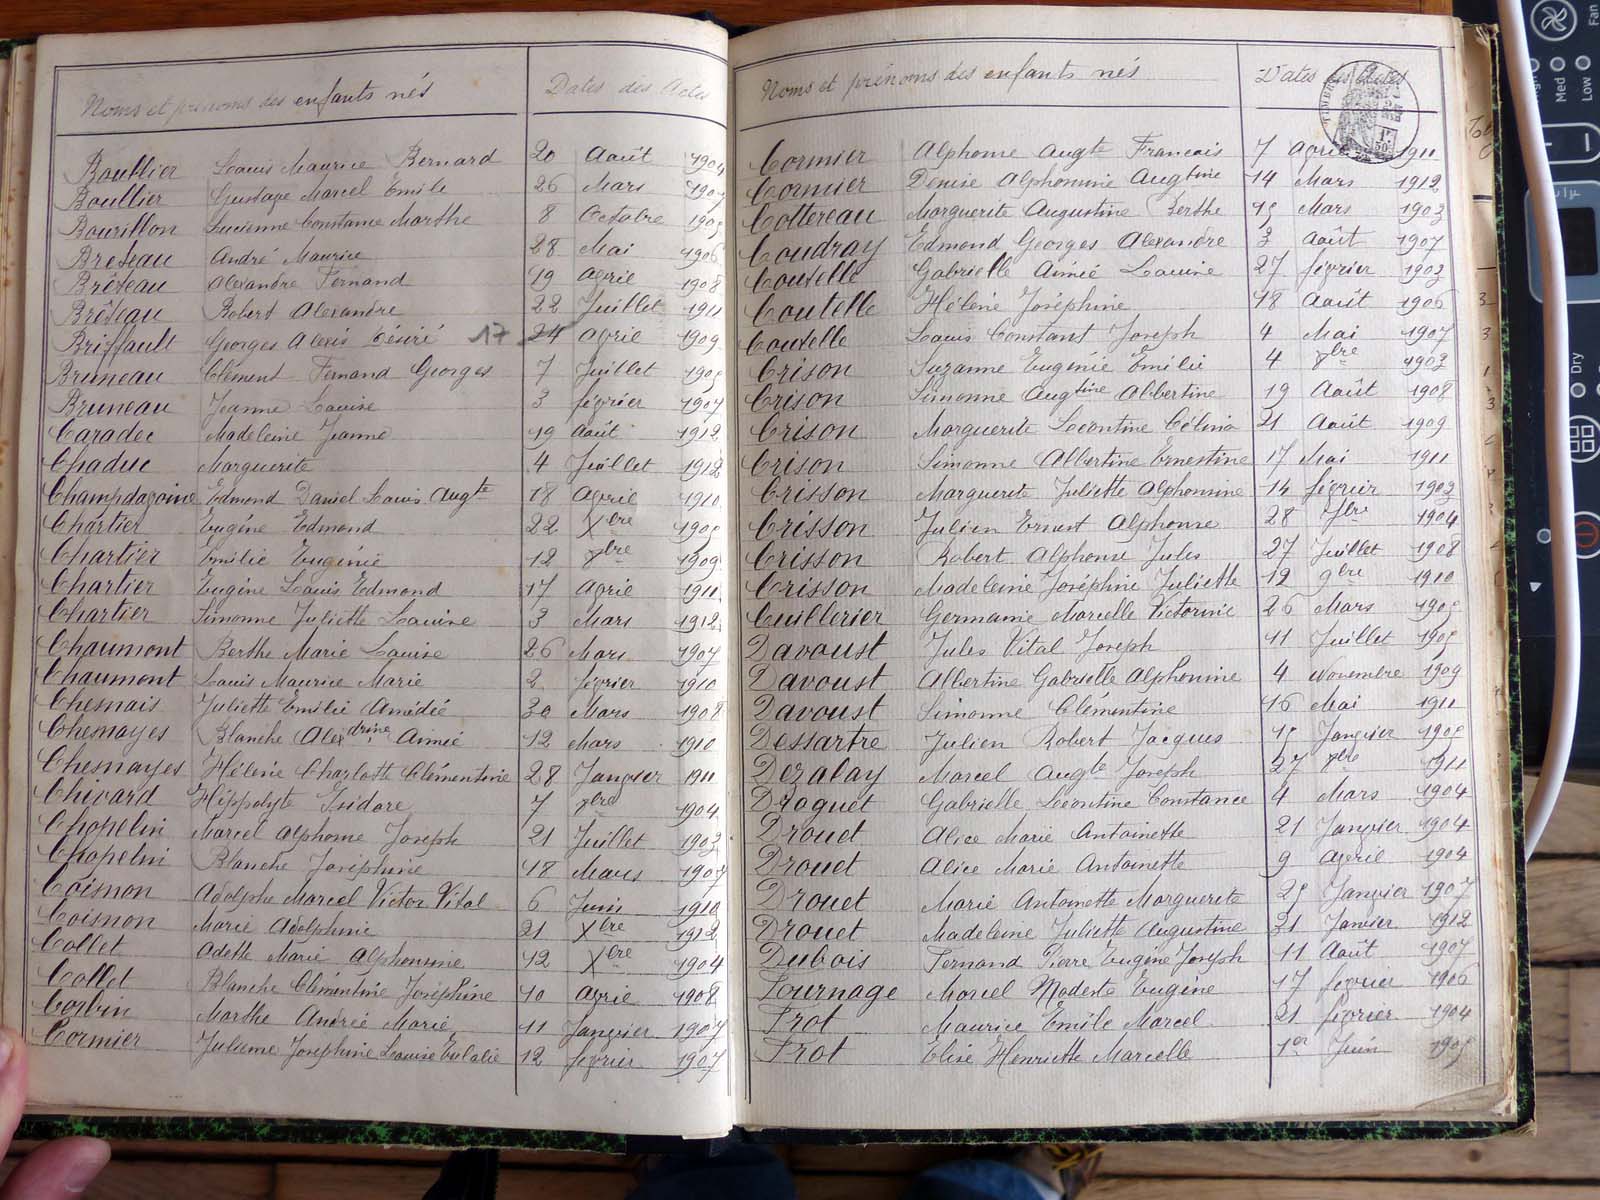 Noms et prénoms des enfants nés Dates des Actes
Boullier Louis Maurice Bernard 20 Août 1904
Boullier Gustave Marcel Emile 26 Mars 1907
Bourillon Lucienne Constance Marthe 8 Octobre 1905
Breteau André Maurice 28 Mai 1906
Brêteau Alexandre Fernand 19 Avril 1908
Brêteau Robert Alexandre 22 Juillet 1911
Briffault Georges Alexis Désiré 17 24 Avril 1909
Bruneau Clément Fernand Georges 7 Juillet 1905
Bruneau Jeanne Louise 3 février 1907
Caradec Madeleine Jeanne 19 Août 1912
Chaduc Marguerite 4 Juillet 1912
Champdavoine Edmond Daniel Louis Augte 18 Avril 1910
Chartier Eugène Edmond 22 Xbre 1905
Chartier Emilie Eugénie 12 8bre 1909
Chartier Eugène Louis Edmond 17 Avril 1911
Chartier Simonne Juliette Louise 3 Mars 1912
Chaumont Berthe Marie Louise 26 Mars 1907
Chaumont Louis Maurice Marie 2 février 1910
Chesnais Juliette Emilie Amédée 30 Mars 1908
Chesnayes Blanche Alexdrine Aimée 12 Mars 1910
Chesnayes Hélène Charlotte Clémentine 28 Janvier 1911
Chivard Hippolyte Isidore 7 8bre 1904
Chopelin Marcel Alphonse Joseph 21 Juillet 1903
Chopelin Blanche Joséphine 18 Mars 1907
Coisnon Adolphe Marcel Victor Vital 6 Juin 1910
Coisnon Marie Adolphine 21 Xbre 1912
Collet Odette Marie Alphonsine 12 Xbre 1904
Collet Blanche Clémentine Joséphine 10 Avril 1908
Corbin Marthe Andrée Marie 11 Janvier 1907
Cormier Julienne Joséphine Louise Eulalie 12 février 1907
Noms et prénoms des enfants nés Dates des Actes
Cormier Alphonse Augte Francois 7 Avril 1911
Cormier Denise Alphonsine Augtine 14 Mars 1912
Cottereau Marguerite Augustine Berthe 15 Mars 1903
Coudray Edmond Georges Alexandre 3 Août 1907
Coutelle Gabrielle Aimée Louise 27 février 1903
Coutelle Hélène Joséphine 18 Août 1906
Coutelle Louis Constant Joseph 4 Mai 1907
Crison Suzanne Eugénie Emilie 4 8bre 1903
Crison Simonne Augtine Albertine 19 Août 1908
Crison Marguerite Léontine Célina 21 Août 1909
Crison Simonne Albertine Ernestine 17 Mai 1911
Crisson Marguerite Juliette Alphonsine 14 février 1903
Crisson Julien Ernest Alphonse 28 7bre 1904
Crisson Robert Alphonse Jules 27 Juillet 1908
Crisson Madeleine Joséphine Juliette 12 9bre 1910
Cuillerier Germaine Marcelle Victorine 26 Mars 1905
Davoust Jules Vital Joseph 11 Juillet 1905
Davoust Albertine Gabrielle Alphonsine 4 Novembre 1909
Davoust Simonne Clémentine 16 Mai 1911
Dessartre Julien Robert Jacques 15 Janvier 1905
Dezalay Marcel Augte Joseph 27 8bre 1911
Draguet Gabrielle Léontine Constance 4 Mars 1904
Drouet Alice Marie Antoinette 21 Janvier 1904
Drouet Alice Marie Antoinette 9 Avril 1904
Drouet Marie Antoinette Marguerite 25 Janvier 1907
Drouet Madeleine Juliette Augustine 31 Janvier 1912
Dubois Fernand Pierre Eugène Joseph 11 Août 1907
Fournage Marcel Modeste Eugène 17 février 1906
Frot Maurice Emile Marcel 21 février 1904
Frot Elise Henriette Marcelle 1er Juin 1905
Fan
Med
Low
Dry